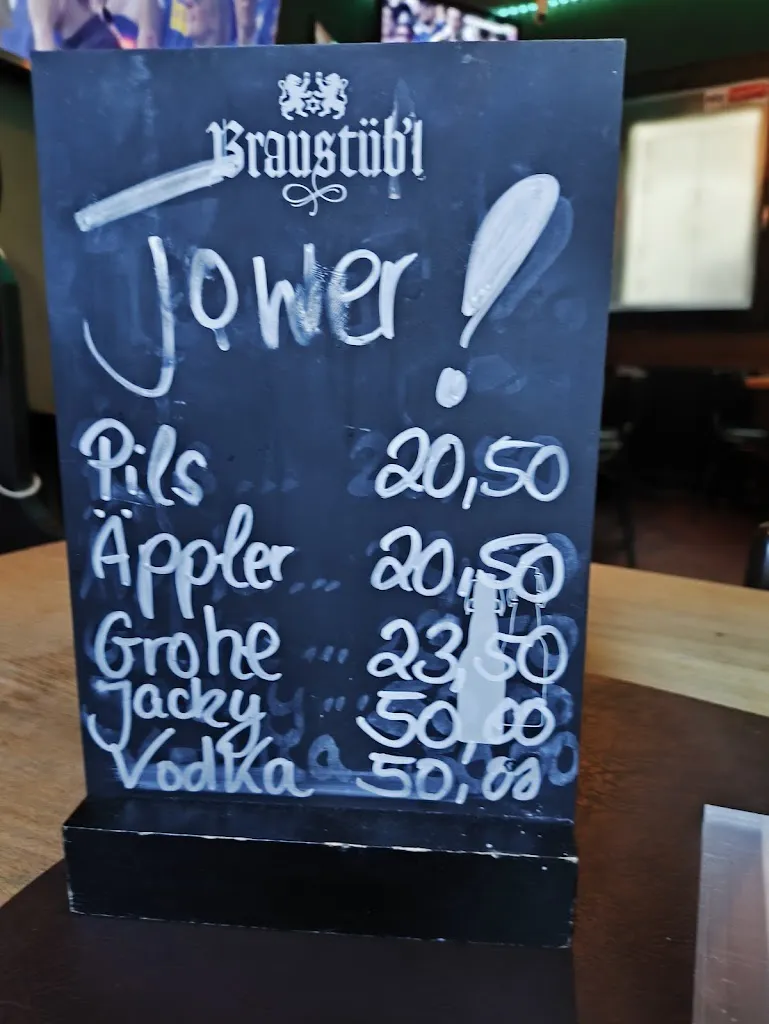 Braustüb'l
Jower!
Pils 20,50
Äppler 20,50
Grohe 23,50
Jacky 50,00
Vodka 50,00